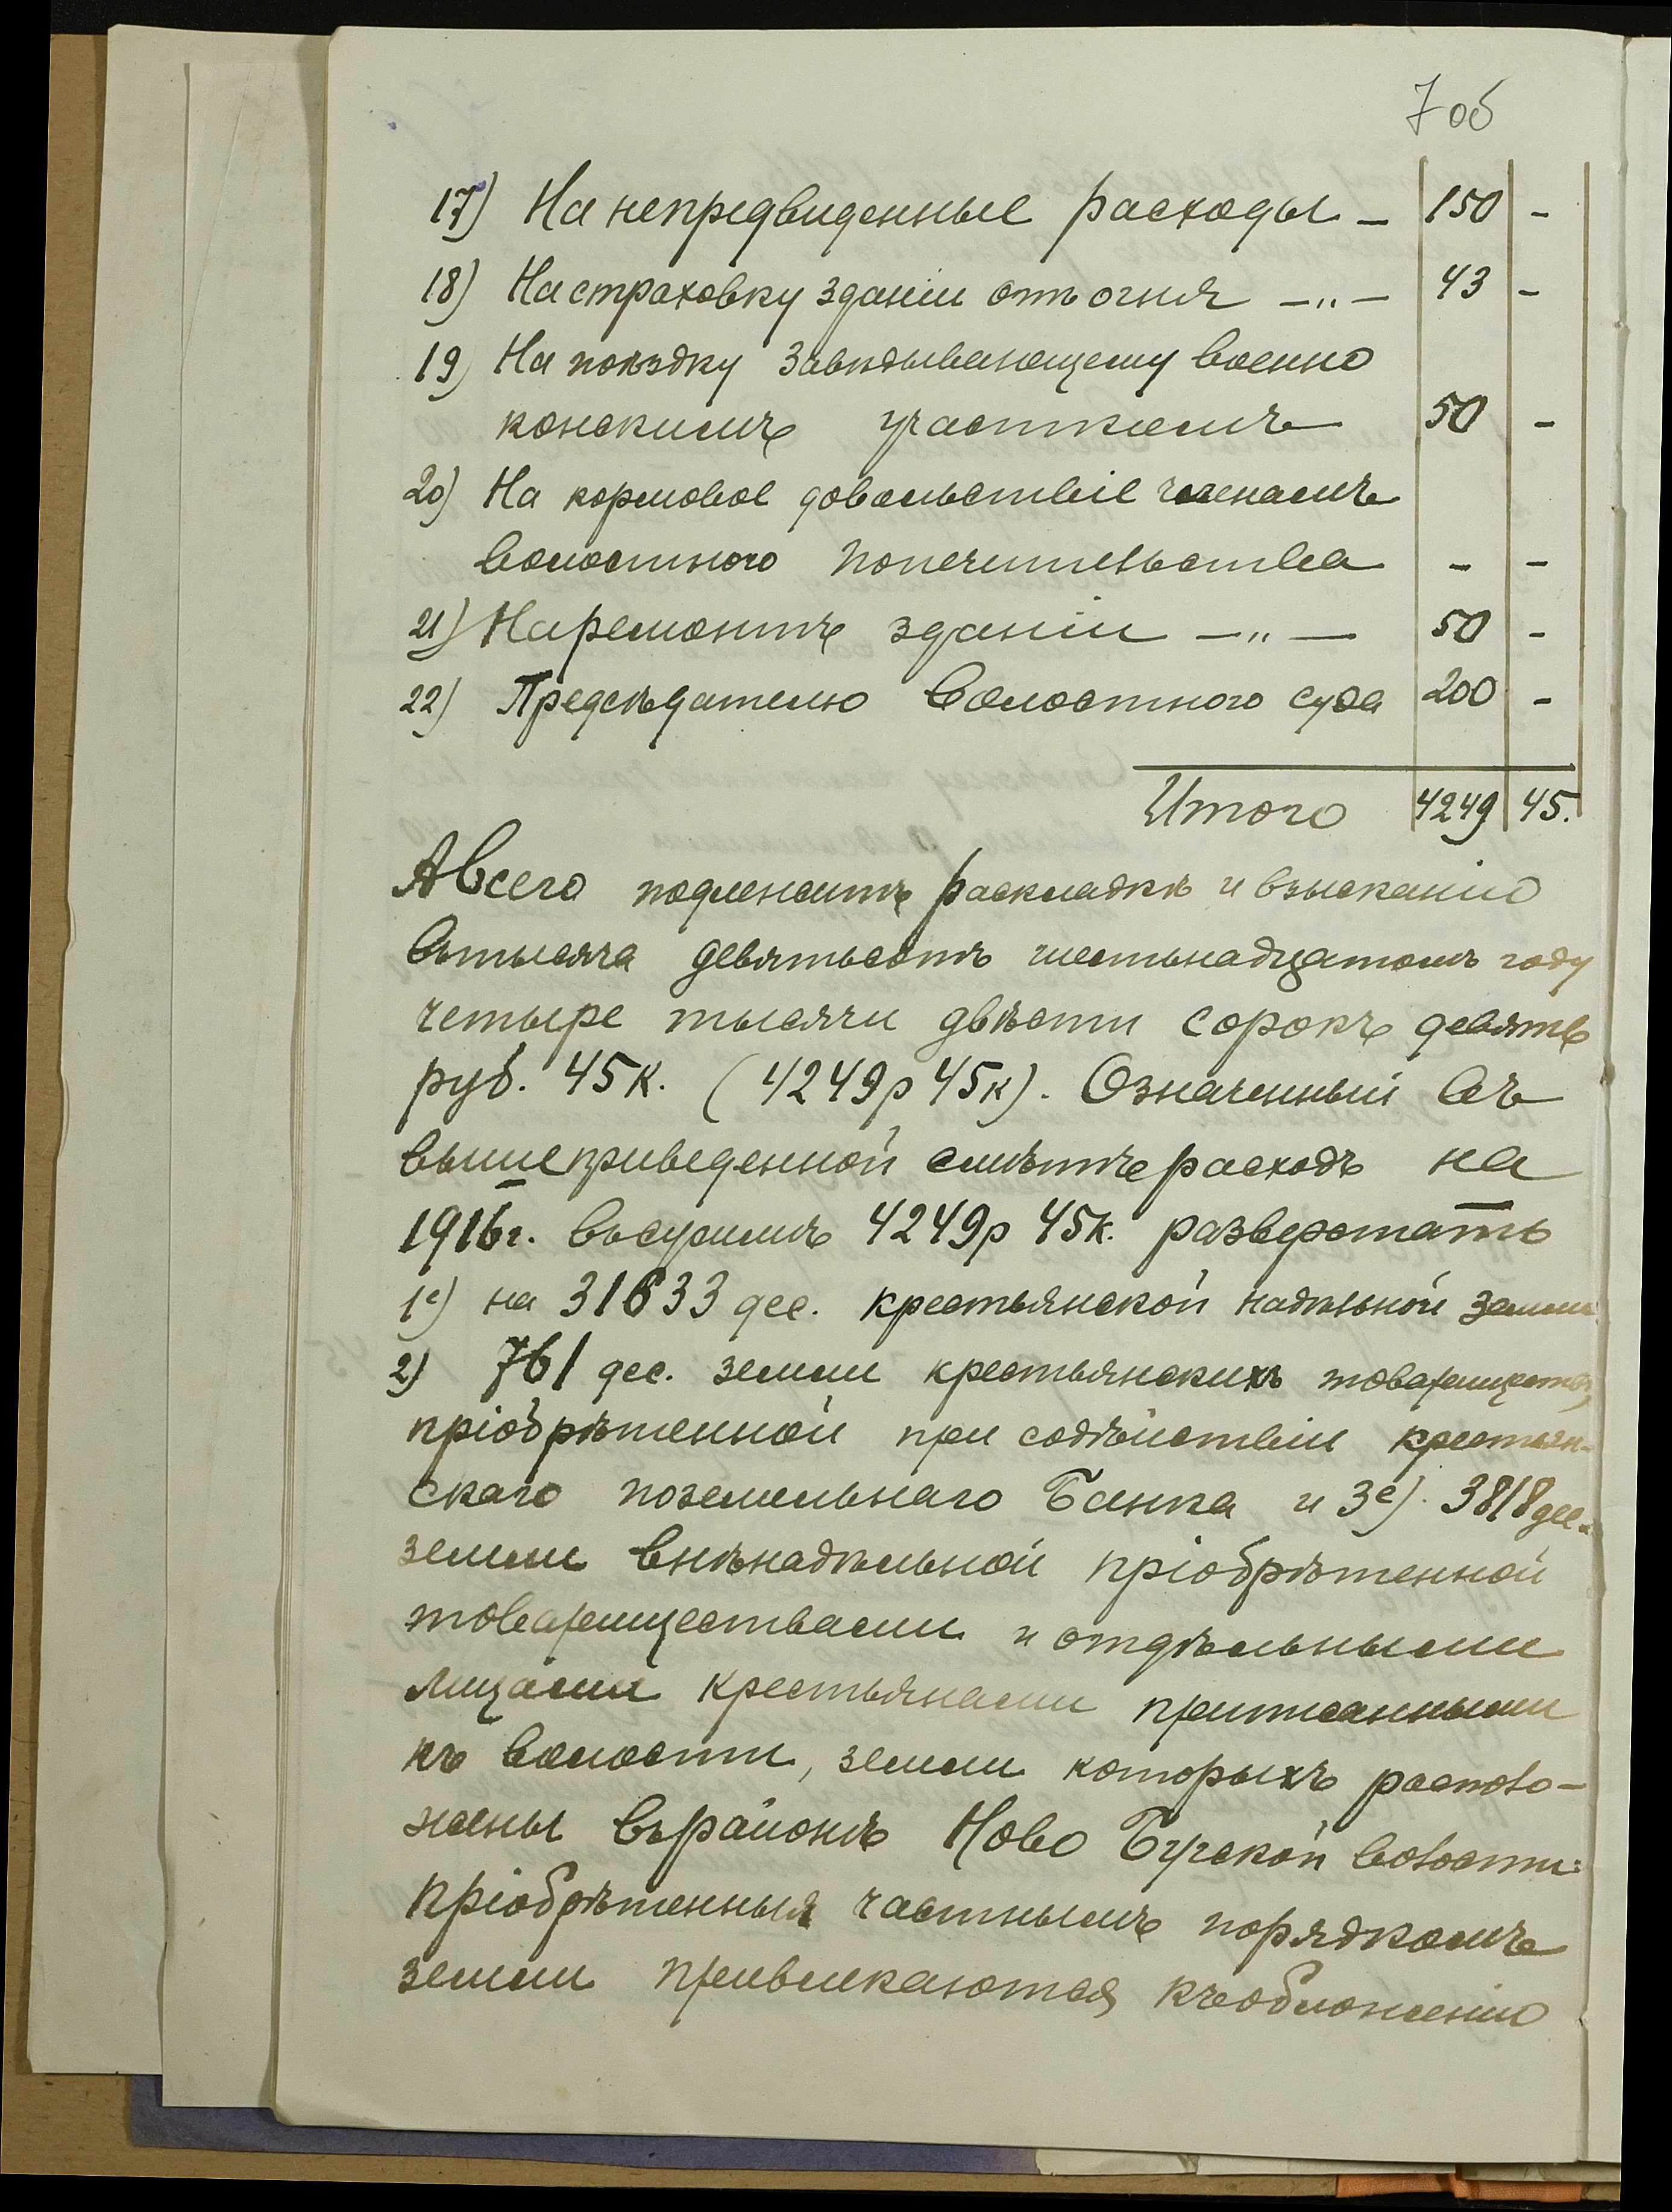 7 об
17) На непредвиденные расходы – 150 –
18) На страховку зданіи отъ огня – " – 43 –
19) На поѣздку Завѣдывающему Военно
конскимъ участкомъ 50 –
20) На кормовое довольствіе членамъ
Волостного Попечительства – –
21) На ремонтъ зданіи – " – 50 –
22) Предсѣдателю Волостного Суда 200 –
Итого 4249 45.
А всего подлежитъ раскладкѣ и взысканію
въ тысяча девятьсотъ шестьнадцатомъ году
четыре тысячи двѣсти сорокъ девять
руб. 45 к. (4249 р 45 к). Означенный въ
вышеприведенной смѣтѣ расходъ на
1916 г. въ суммѣ 4249 р 45 к. разверстать
1е) на 31633 дес. крестьянской надѣльной земли
2) 761 дес. земли крестьянскихъ товариществъ,
пріобрѣтенной при содѣйствіи крестьян-
скаго поземельнаго Банка и 3е) 3818 дес.
земли внѣнадѣльной пріобрѣтенной
товариществами и отдѣльными
лицами крестьянами приписанными
къ волости, земли которыхъ располо-
жены въ районѣ Ново Бугской волости:
пріобрѣтенныя частнымъ порядкомъ
земли привлекаются къ обложенію